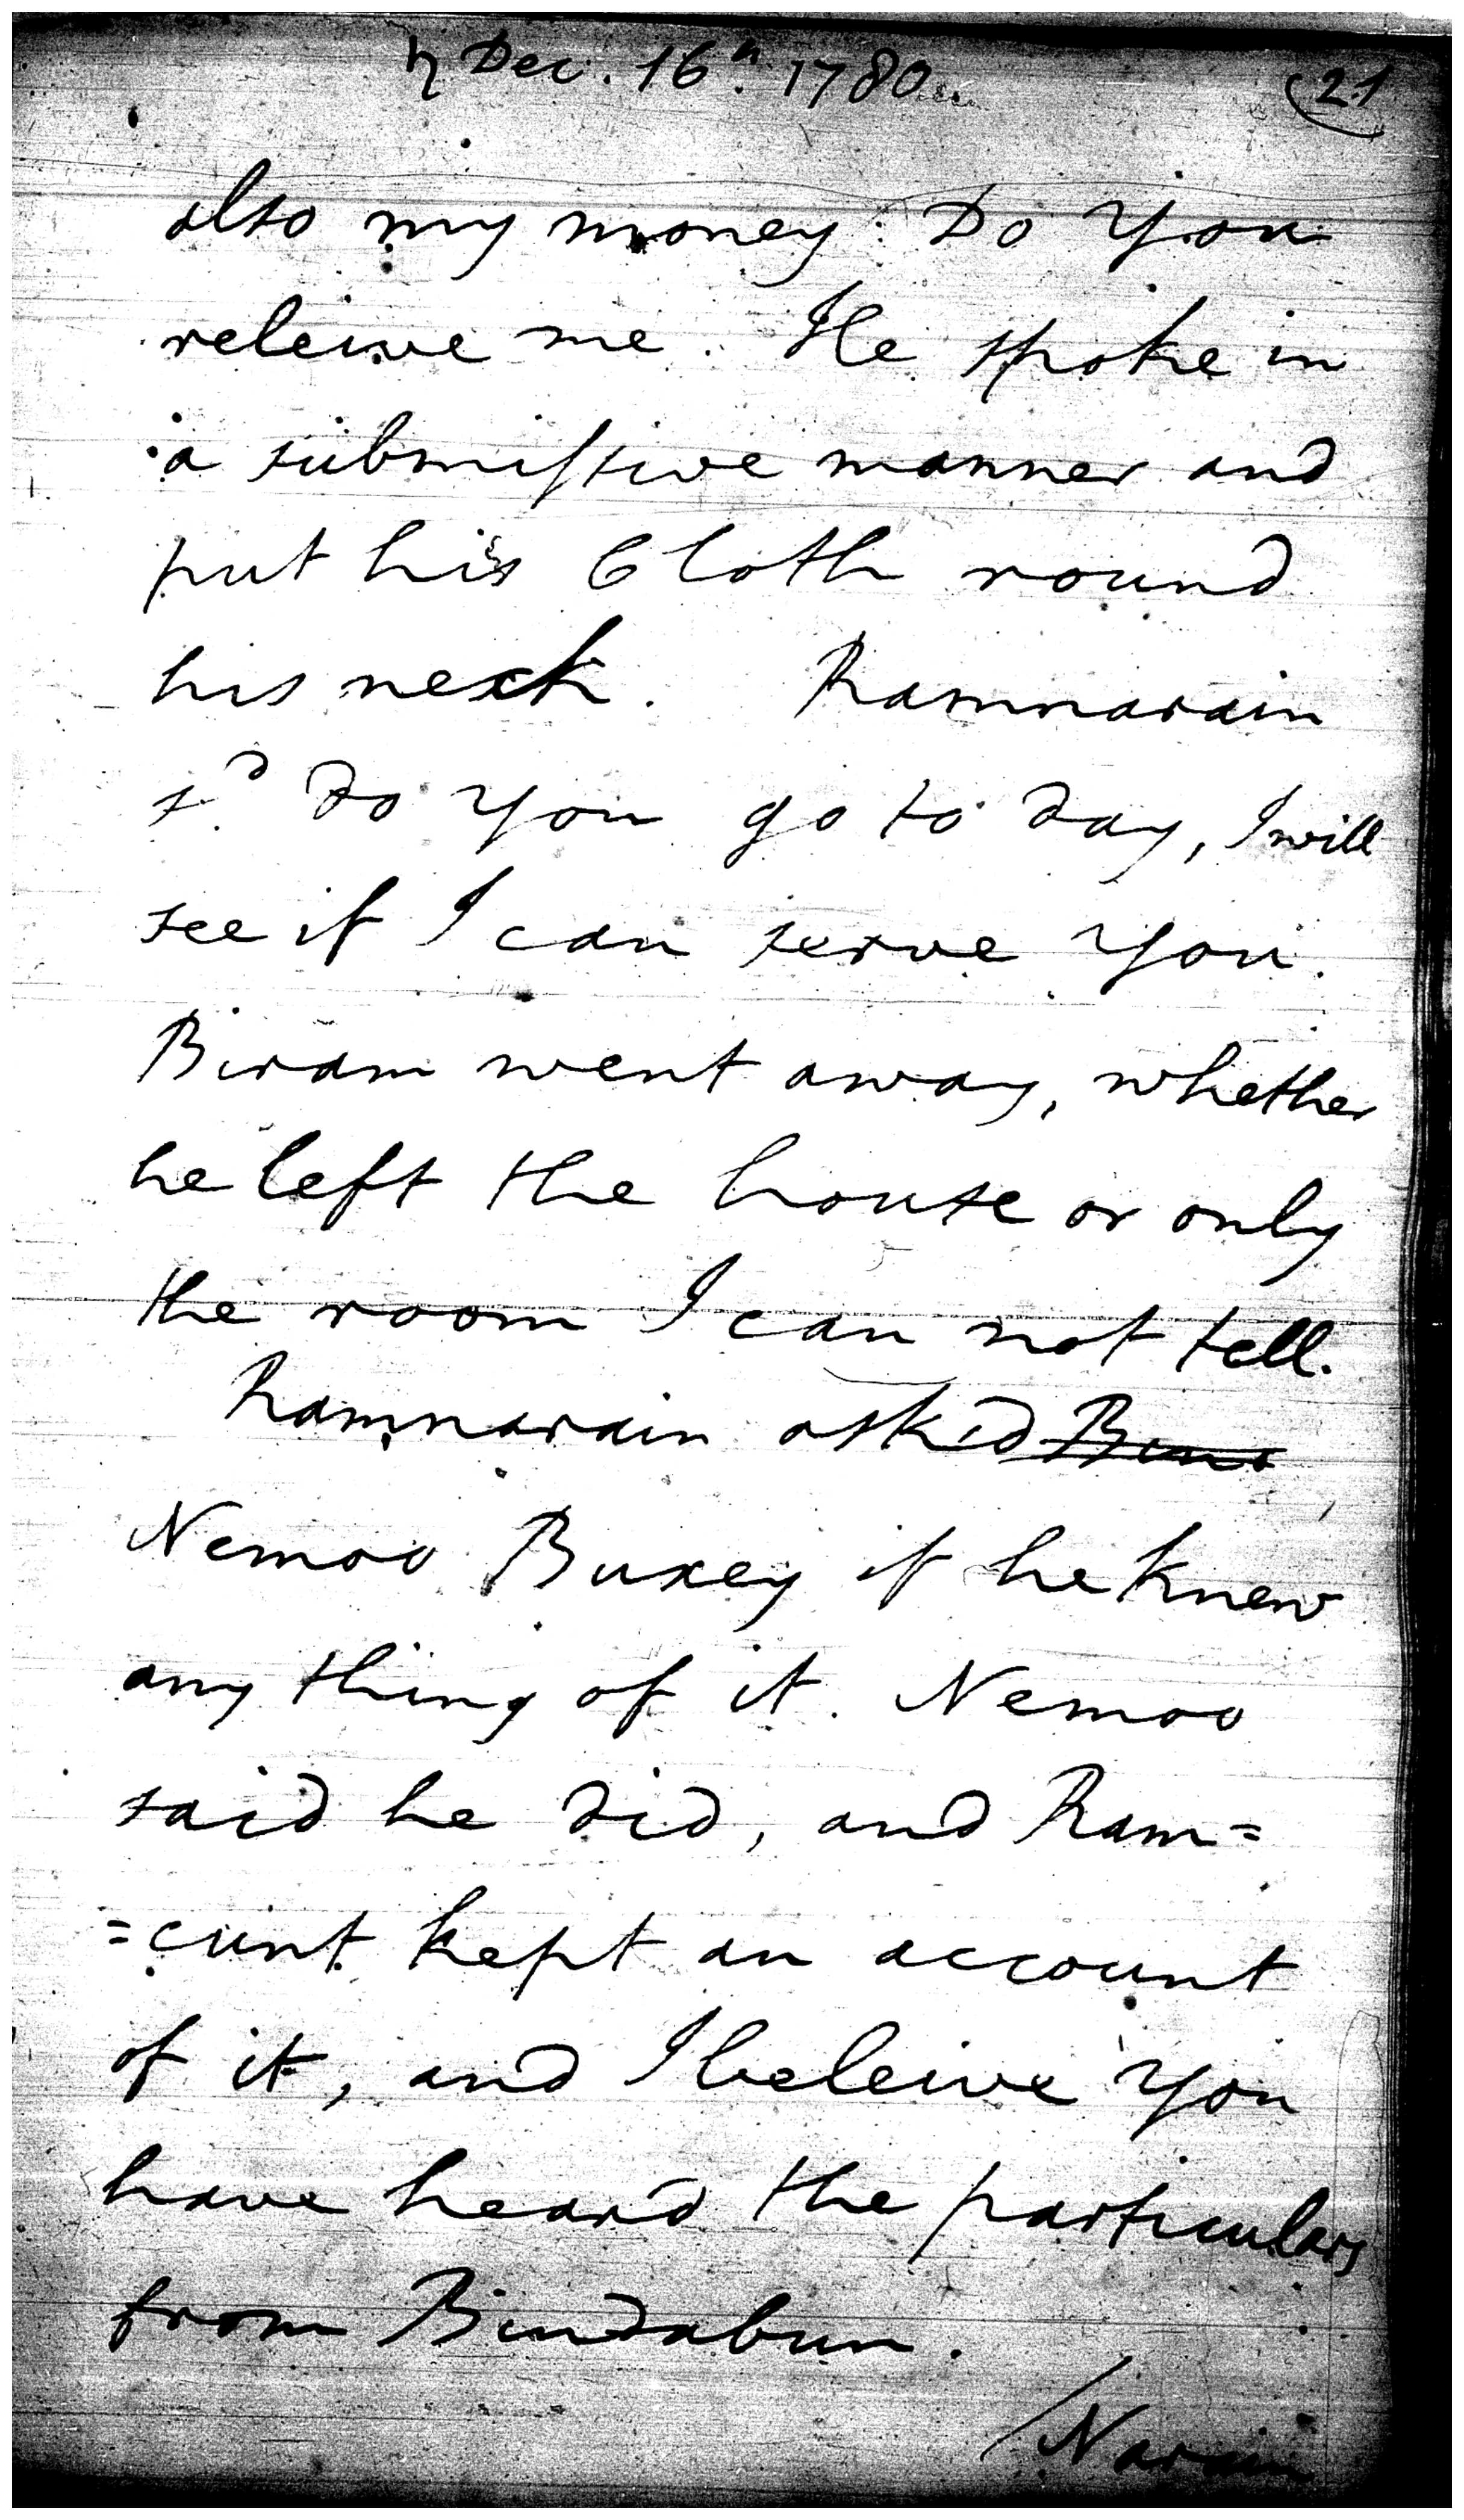 ♄ Dec. 16th. 1780
(21
also my money. Do you
releive me. He spoke in
a submissive manner and
put his Cloth round
his neck. Ramnarain
sd. do you go to day, I will
see if I can serve you.
Biram went away, whether
he left the house or only
the room I can not tell.
Ramnarain ask'd
Nemoo Buxey if he knew
any thing of it. Nemoo
said he did, and Ram=
=cunt kept an account
of it, and I beleive you
have heard the particulars
from Bindabun.
/Narain